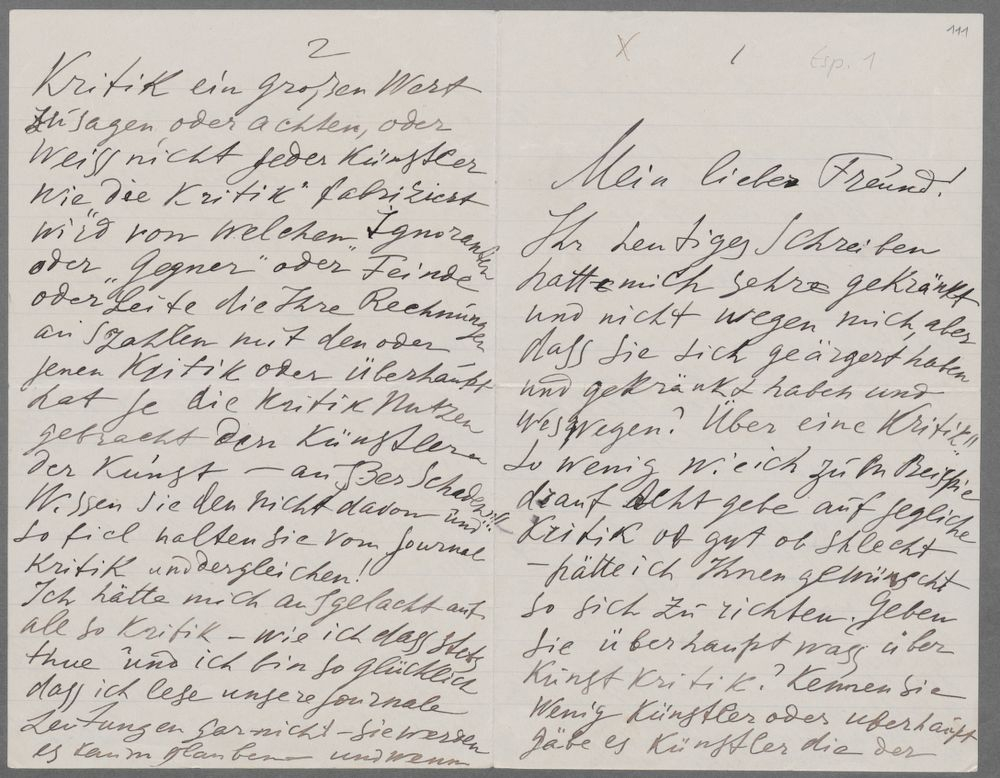 111
X 1 Esp. 1
Mein lieber Freund!
Ihr heutiges Schreiben
hatte mich sehre gekränkt
und nicht wegen mich, aber
dass Sie sich geärgert haben
und gekränkt haben und
weswegen? Über eine Kritik"
so wenig wie ich zum Beispie
drauf Acht gebe auf jegliche
Kritik ob gut ob schlecht
– hätte ich Ihnen gewünscht
so sich zu richten. Geben
Sie überhaupt wass über
Kunst Kritik? Kennen Sie
Wenig Künstler oder uberhaupt
gäbe es Künstler die der
2
Kritik ein großen Wert
zusagen oder achten, oder
Weiss nicht jeder Künstler
wie "die Kritik" fabriziert
wird von welchen "Ignoranten
oder "Gegner" oder "Feinde
oder Leute die Ihre Rechnungen
aus zahlen mit den oder
jenen Kritik oder Überhaupt
hat je die Kritik Nutzen
gebracht den Künstler
der Kunst – außer Schaden!!!
Wissen Sie den nicht davon und
so fiel halten Sie vom Journal
Kritik und dergleichen!
Ich hätte mich ausgelacht auf
alle so Kritik – wie ich dass stets
thue und ich bin so glücklich
dass ich lese unsere Journale
Zeitungen garnicht – Sie werden
es kaum glauben – und wenn